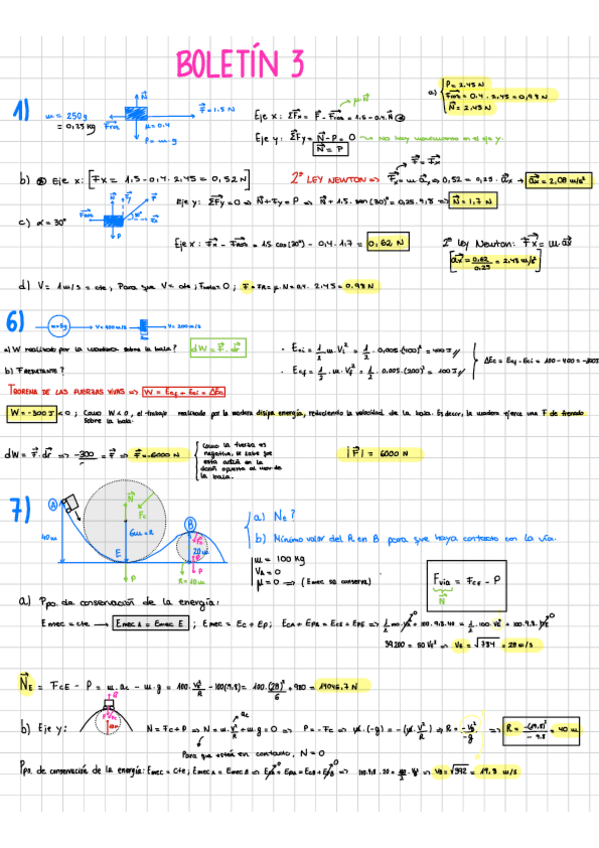 BOLETÍN 3
1)
m = 250g
= 0,25 Kg
N
F = 1.5 N
Froz
μ = 0.4
P = m·g
μN
Eje x: ΣFx = F - Froz = 1.5 - 0.4·N
Eje y: ΣFy = N - P = 0
N = P
a)
P = 2.45 N
Froz = 0.4 · 2.45 = 0,98 N
N = 2.45 N
b) Eje x: [Fx = 1.5 - 0.4 · 2.45 = 0,52 N]
2ª LEY NEWTON => Fx = m·ax => 0,52 = 0,25 · ax → ax = 2,08 m/s²
c) α = 30°
Eje y: ΣFy = 0 => N + Fy = P => N + 1.5 · sen (30)° = 0,25 · 9,8 => N = 1,7 N
Eje x: Fx - Froz = 1.5 cos(30°) - 0,4 · 1,7 = 0,62 N
2ª Ley Newton: Fx = m·ax
ax = 0,62/0,25 = 2.48 m/s²
d) V = 1 m/s = cte, Para que V = cte; Ftotal = 0; F = FR = μ·N = 0.4 · 2.45 = 0.98 N
6)
m = 5g
V = 400 m/s
V = 200 m/s
a) W realizado por la madera sobre la bala?
dW = F · dr
b) F RESULTANTE?
· Eci = 1/2 · m · Vi² = 1/2 · 0,005 · (400)² = 400 J
· Ecf = 1/2 · m · Vf² = 1/2 · 0,005 · (200)² = 100 J
ΔEc = Ecf - Eci = 100 - 400 = -300 J
TEOREMA DE LAS FUERZAS VIVAS => W = Ecf - Eci = ΔEc
W = -300 J < 0; Como W < 0, el trabajo realizado por la madera disipa energía, reduciendo la velocidad de la bala. Es decir, la madera ejerce una F de frenado
sobre la bala.
dW = F · dr => -300 = F => F = -6000 N
Como la fuerza es
negativa, se sabe que
esta actúa en la
opuesto al mov de
la bala.
|F| = 6000 N
7)
A
40m
N
Fc
6m = R
E
P
B
20m
R = 10m
a) NE?
b) Mínimo valor del R en B para que haya contacto con la vía.
m = 100 Kg
VA = 0
μ = 0 => (Emec se conserva)
Fvia = FCE - P
N
a) Ppo. de conservación de la energía:
Emec = cte → Emec A = Emec E; Emec = Ec + Ep; EcA + EpA = EcE + EpE
39200 = 50 VE² => VE = √784 = 28 m/s
NE = FcE - P = m·ac - m·g = 100 · VE²/R - 100(9.8) = 100 · (28)²/6 + 980 = 14046.7 N
b) Eje y:
N = Fc + P => N = m · V²/R + m·g = 0 => P = -Fc
Para que estén en contacto, N = 0
Ppo. de conservación de la energía: Emec = Cte; Emec A = Emec B
VB = √392 = 19.8 m/s